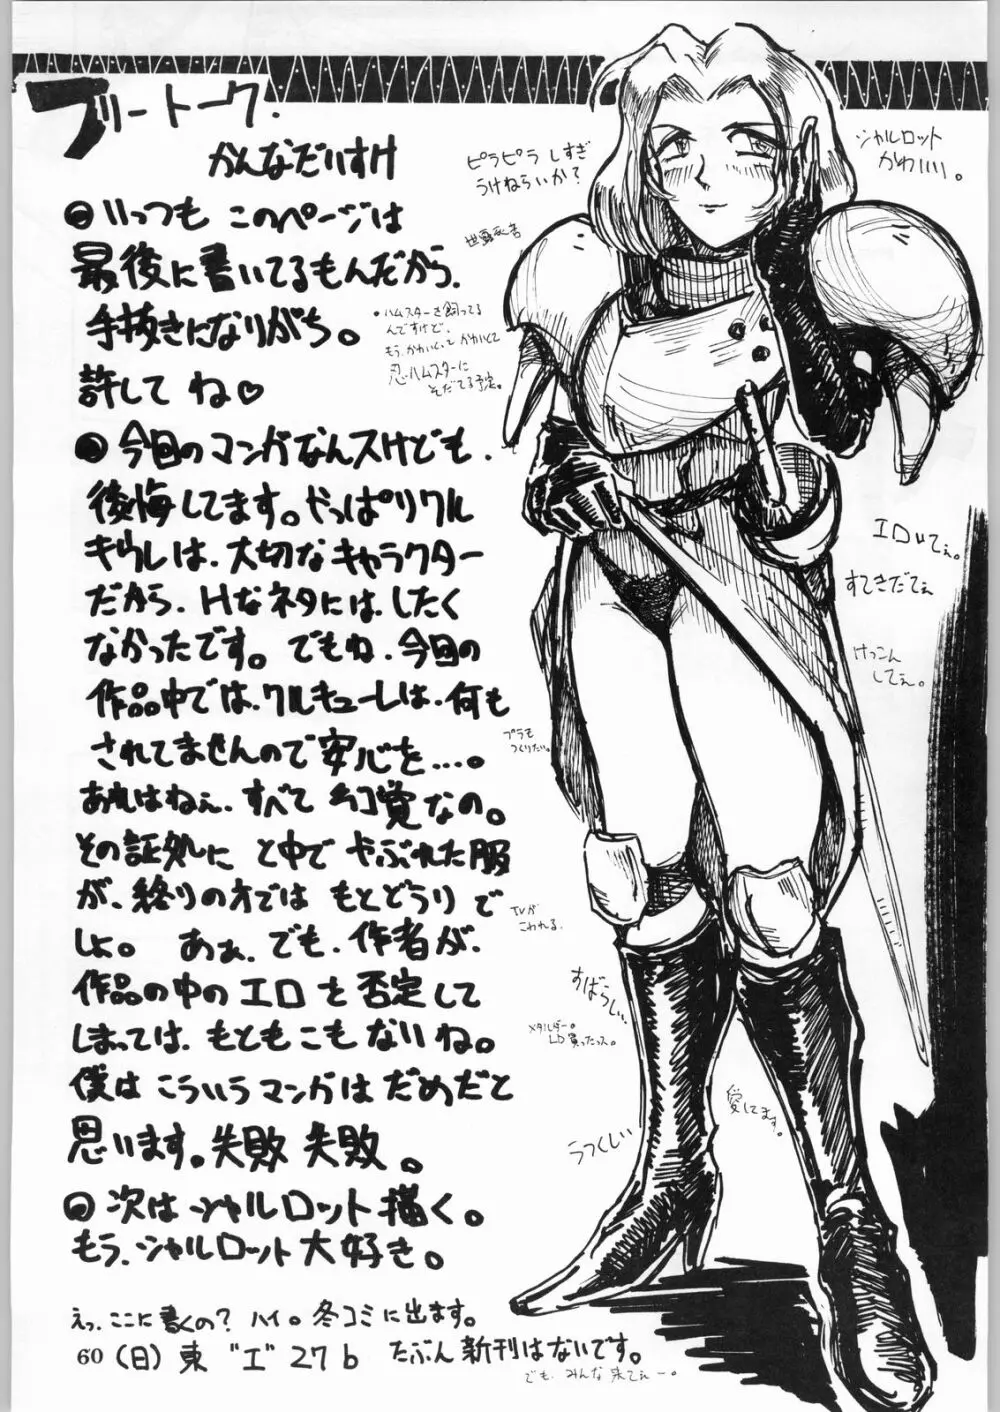 フリートーク.
かんなだいすけ
いっつも このページは
最後に書いてるもんだから.
手抜きになりがち。
許してね♡
今回のマンガなんスけども.
後悔してます。やっぱりワル
キウレは、大切なキャラクター
だから. Hなネタには.したく
なかったです。でもね.今回の
作品中では.ワルキューレは.何も
されてませんので安心を...。
あれはねぇ.すべて幻覚なの。
その証処に と中で やぶれた服
が、終りの方では もとどうりで
しょ。 あぁ、でも.作者が.
作品の中のエロを否定して
しまっては、もともこもないね。
僕は こういうマンガは だめだと
思います。失敗 失敗。
次は シャルロット描く。
もう、シャルロット大好き。
えっ、ここに書くの? ハイ。冬コミに出ます。
60 (日) 東 "エ" 27 b たぶん新刊はないです。
でも、みんな来てぇー。
ピラピラ しすぎ
うけねらいか?
シャルロット
かわいい。
・ハムスターを飼ってる
んですけど、
もう、かわいくて かわいくて
忍ハムスターに
そだてる予定。
すてきだてぇ
けっこん
してぇ。
プラも
つくりたい。
TVが
こわれる.
すばらしい、
メタルダー。
LD買ったっス。
愛してます。
うつくしい